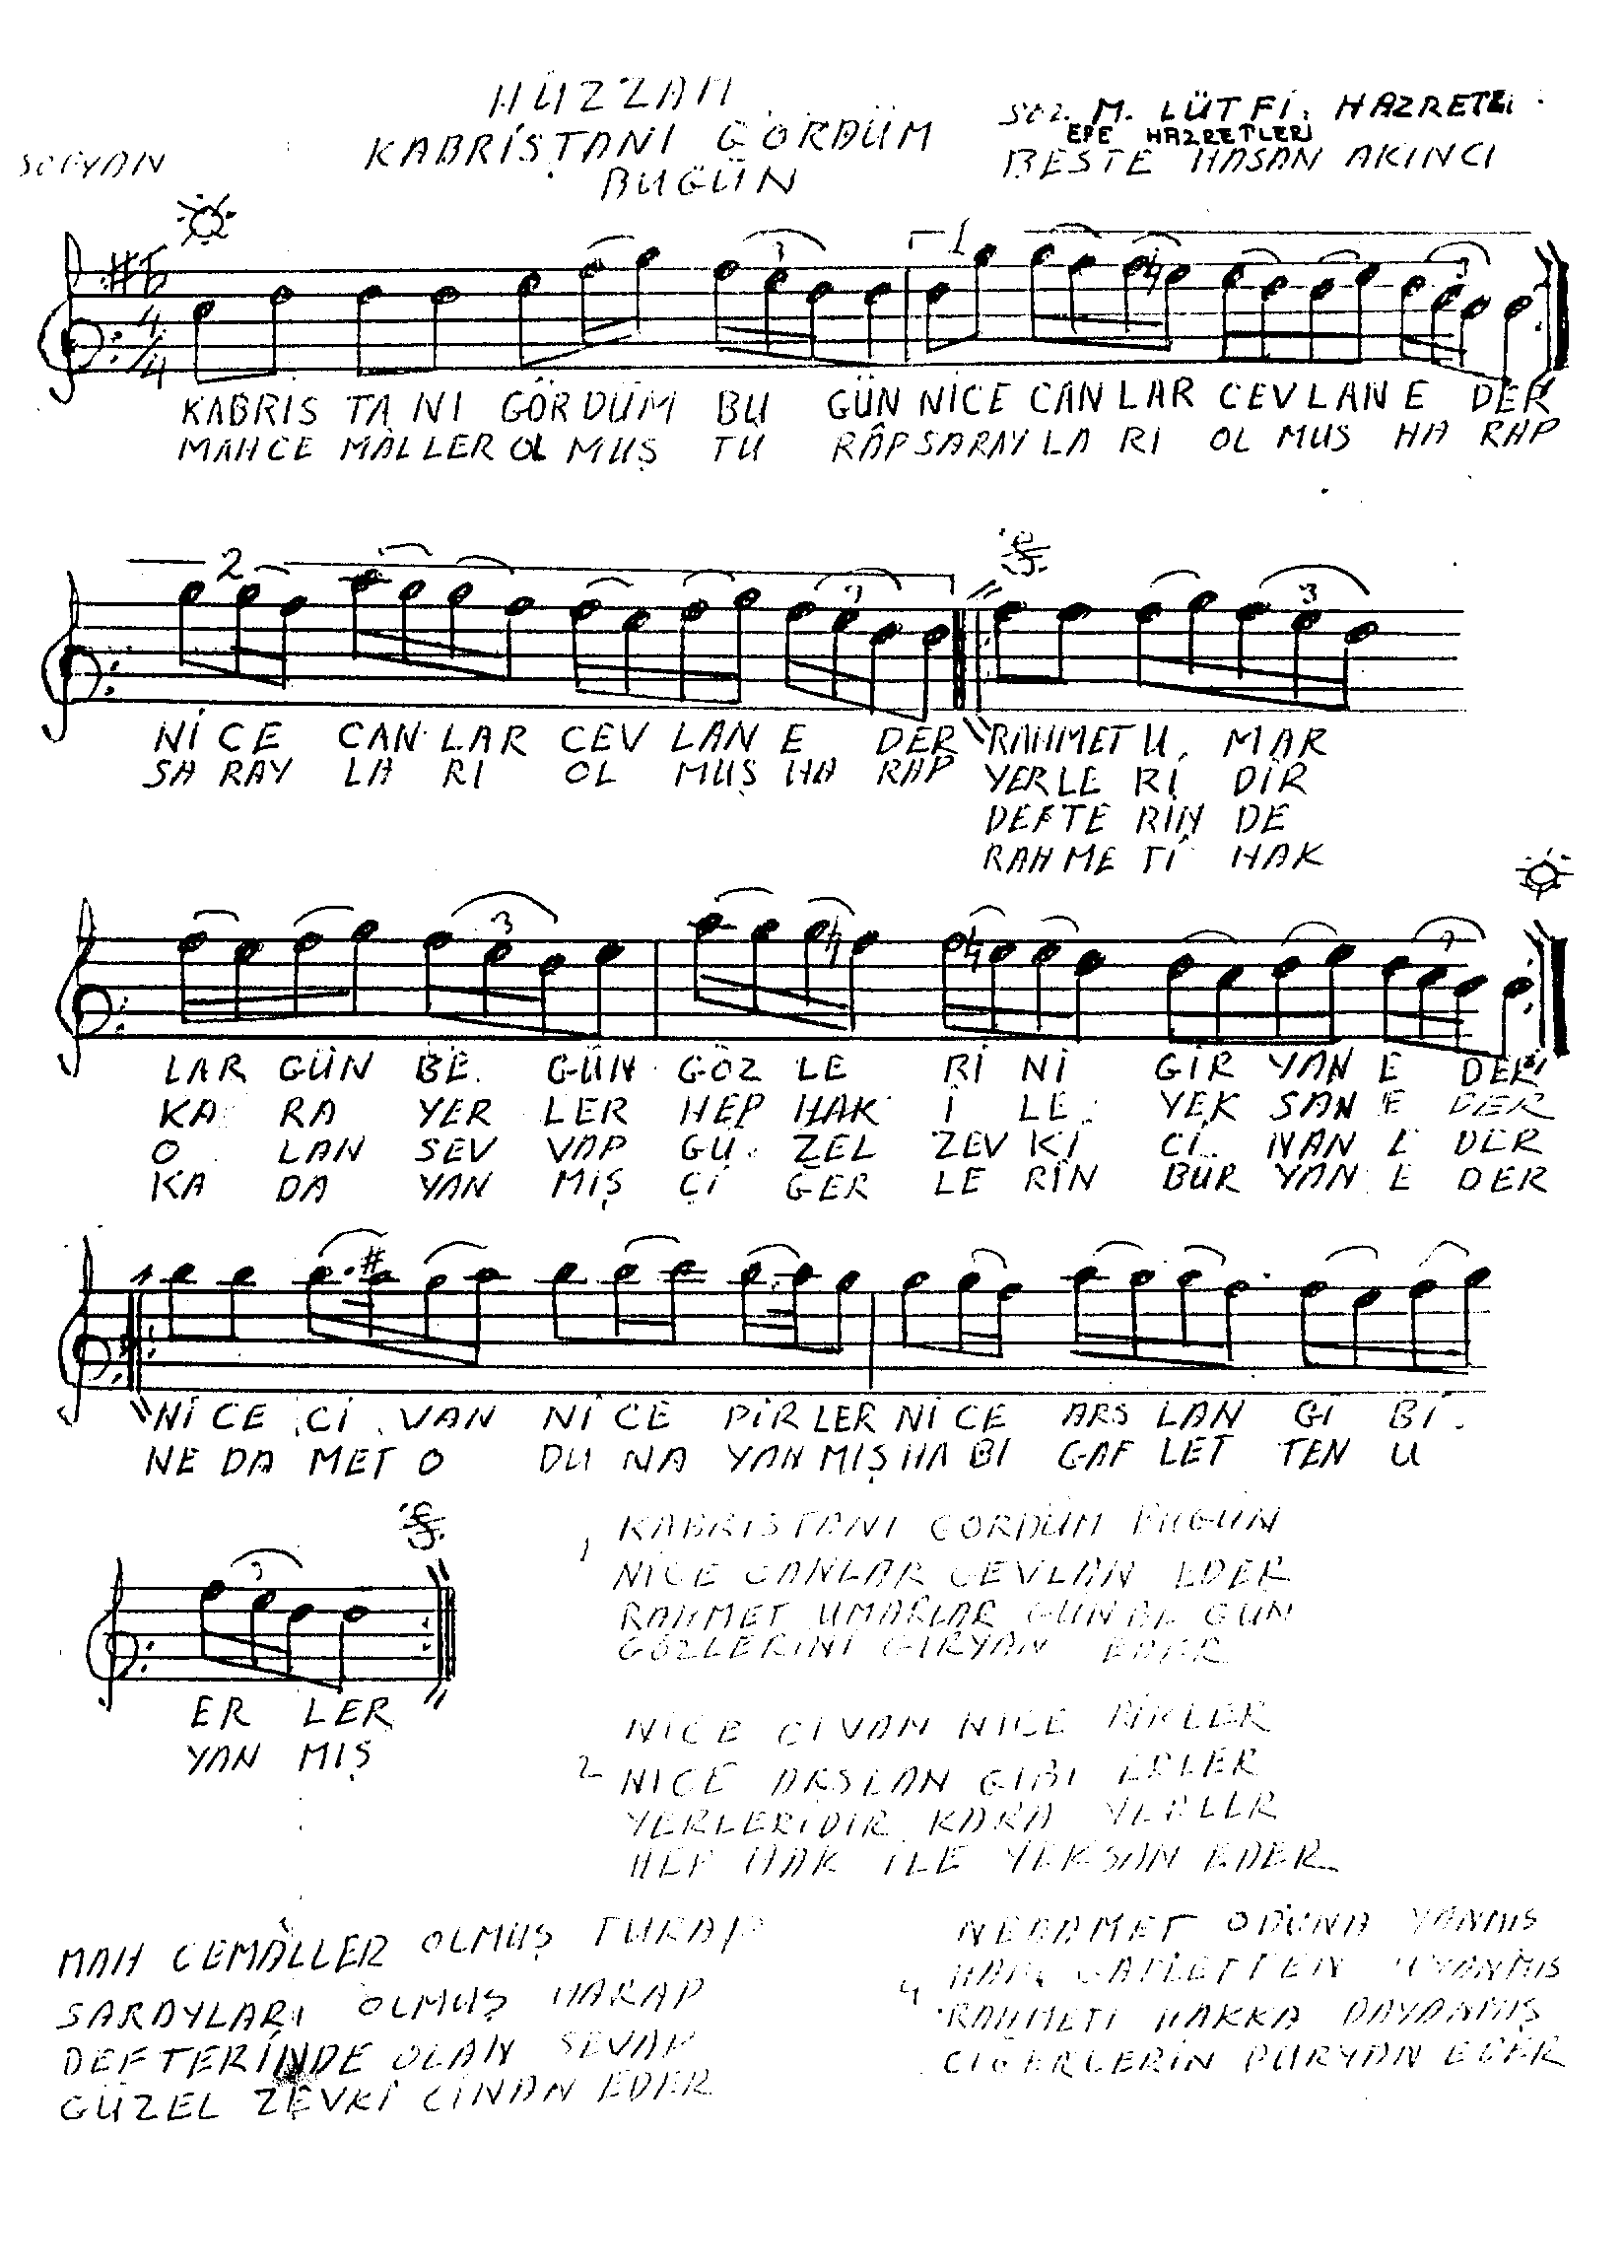 HÜZZAM
KABRİSTANI GÖRDÜM
BUGÜN
SOFYAN
SÖZ. M. LÜTFİ. HAZRETLERİ
EFE HAZRETLERİ
BESTE HASAN AKINCI
4/4
3 1 3
KABRİS TA NI GÖR DÜM BU GÜN NİCE CAN LAR CEV LAN E DER
MAHCE MÂL LER OL MUŞ TU RÂP SARAY LA RI OL MUŞ HA RAP
2 3 3
NİCE CAN LAR CEV LAN E DER RAHMET U MAR
SA RAY LA RI OL MUŞ HA RAP YERLE Rİ DİR
DEFTE RİN DE
RAHME Tİ HAK
3 3
LAR GÜN BE GÜN GÖZ LE Rİ Nİ GİR YAN E DER
KA RA YER LER HEP HAK İ LE YEK SAN E DER
O LAN SEV VAP GÜ ZEL ZEV Kİ Cİ NAN E DER
KA DA YAN MIŞ Çİ ĞER LE RİN BUR YAN E DER
NİCE Cİ VAN Nİ CE PİR LER NİCE ARS LAN Gİ Bİ
NE DA MET O DU NA YAN MIŞ HA BI GAF LET TEN U
3
ER LER
YAN MIŞ
1 KABRİSTANI GÖRDÜM BUGÜN
NİCE CANLAR CEVLAN EDER
RAHMET UMARLAR GÜN BE GÜN
GÖZLERİNİ GİRYAN EDER
NİCE CİVAN NİCE PİRLER
2 NİCE ARSLAN GİBİ ERLER
YERLERİDİR KARA YERLER
HEP HAK İLE YEKSAN EDER
MAH CEMÂLLER OLMUŞ TURAP
SARAYLARI OLMUŞ HARAP
DEFTERİNDE OLAN SEVAP
GÜZEL ZEVKİ CİNAN EDER
NEDAMET ODUNA YANMIŞ
4 GAFLETTEN UYANMIŞ
RAHMETİ HAKKA DAYANMIŞ
CİĞERLERİN BURYAN EDER